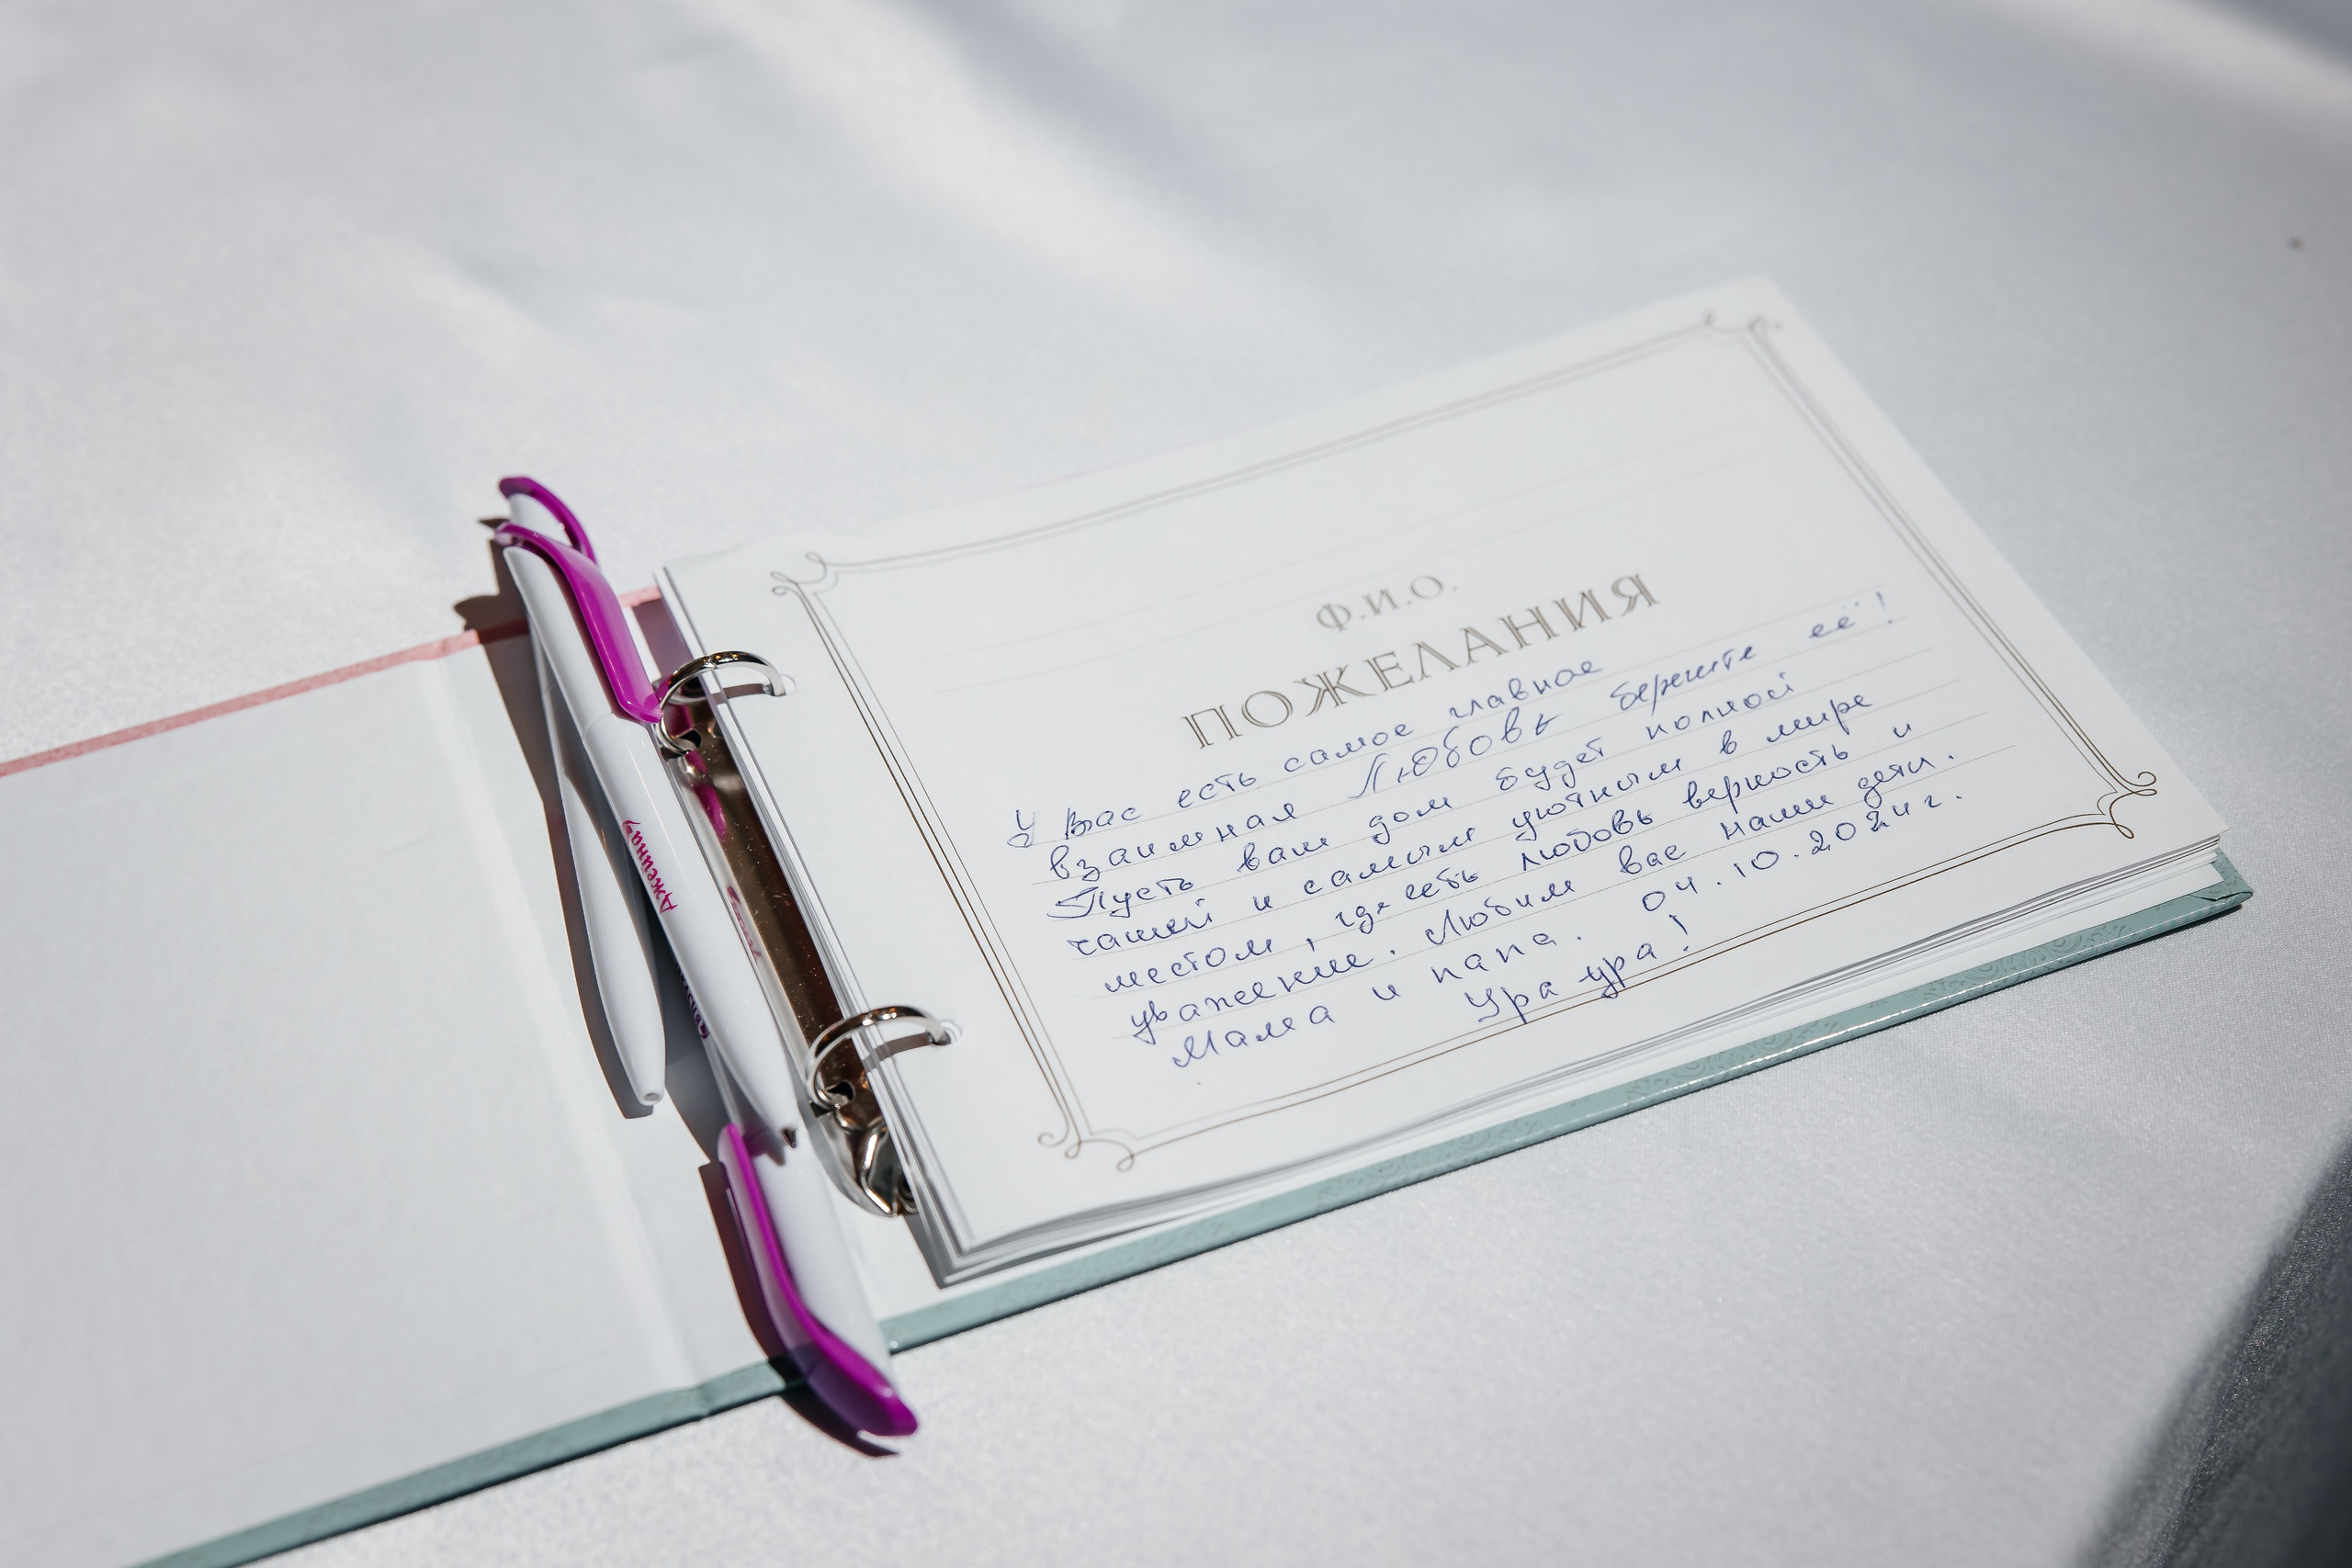 Ф.И.О.
ПОЖЕЛАНИЯ
У вас есть самое главное
взаимная Любовь берегите её!
Пусть ваш дом будет полной
чашей и самым уютным в мире
местом, где есть любовь верность и
уважение. Любим вас наши дети.
Мама и папа. 04.10.2024г.
Ура ура!
Джеинач